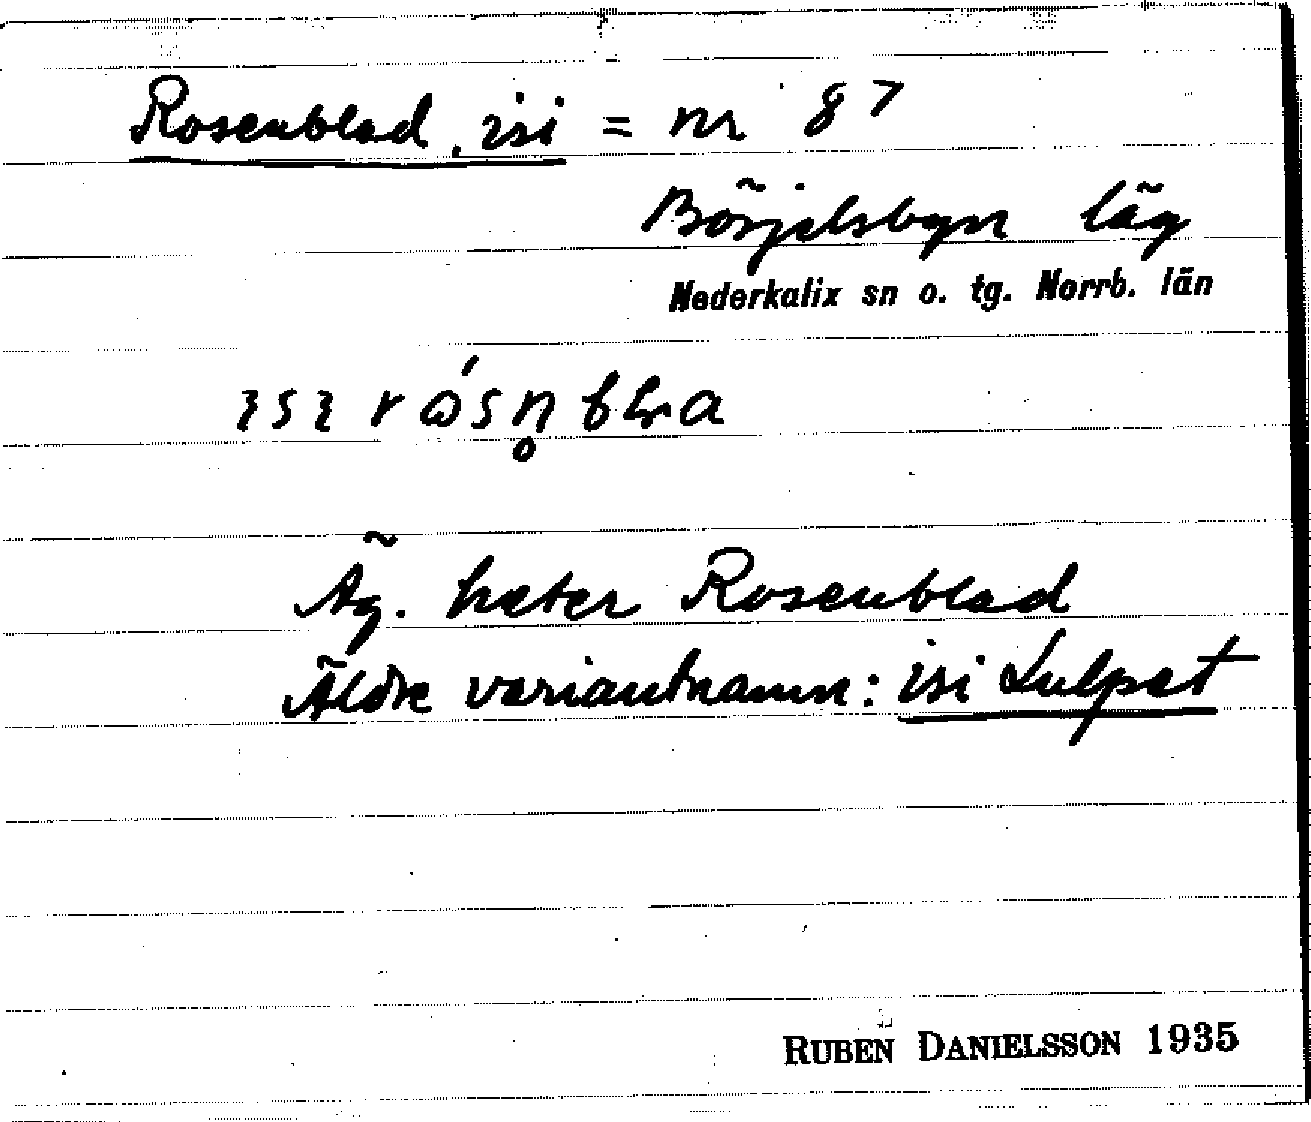 Rosenblad, isi = nr 87
Börjelsbyn läg
Nederkalix sn o. tg. Norrb. län
Äg. heter Rosenblad
Äldre variantnamn: isi Lulpet
RUBEN DANIELSSON 1935